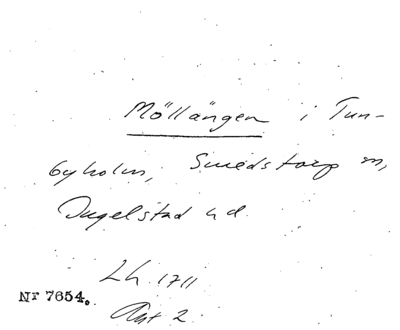 Möllängen i Tun-
byholm, Smedstorp sn,
Ingelstad hd
Lh. 1711
Akt 2.
Nr 7654.